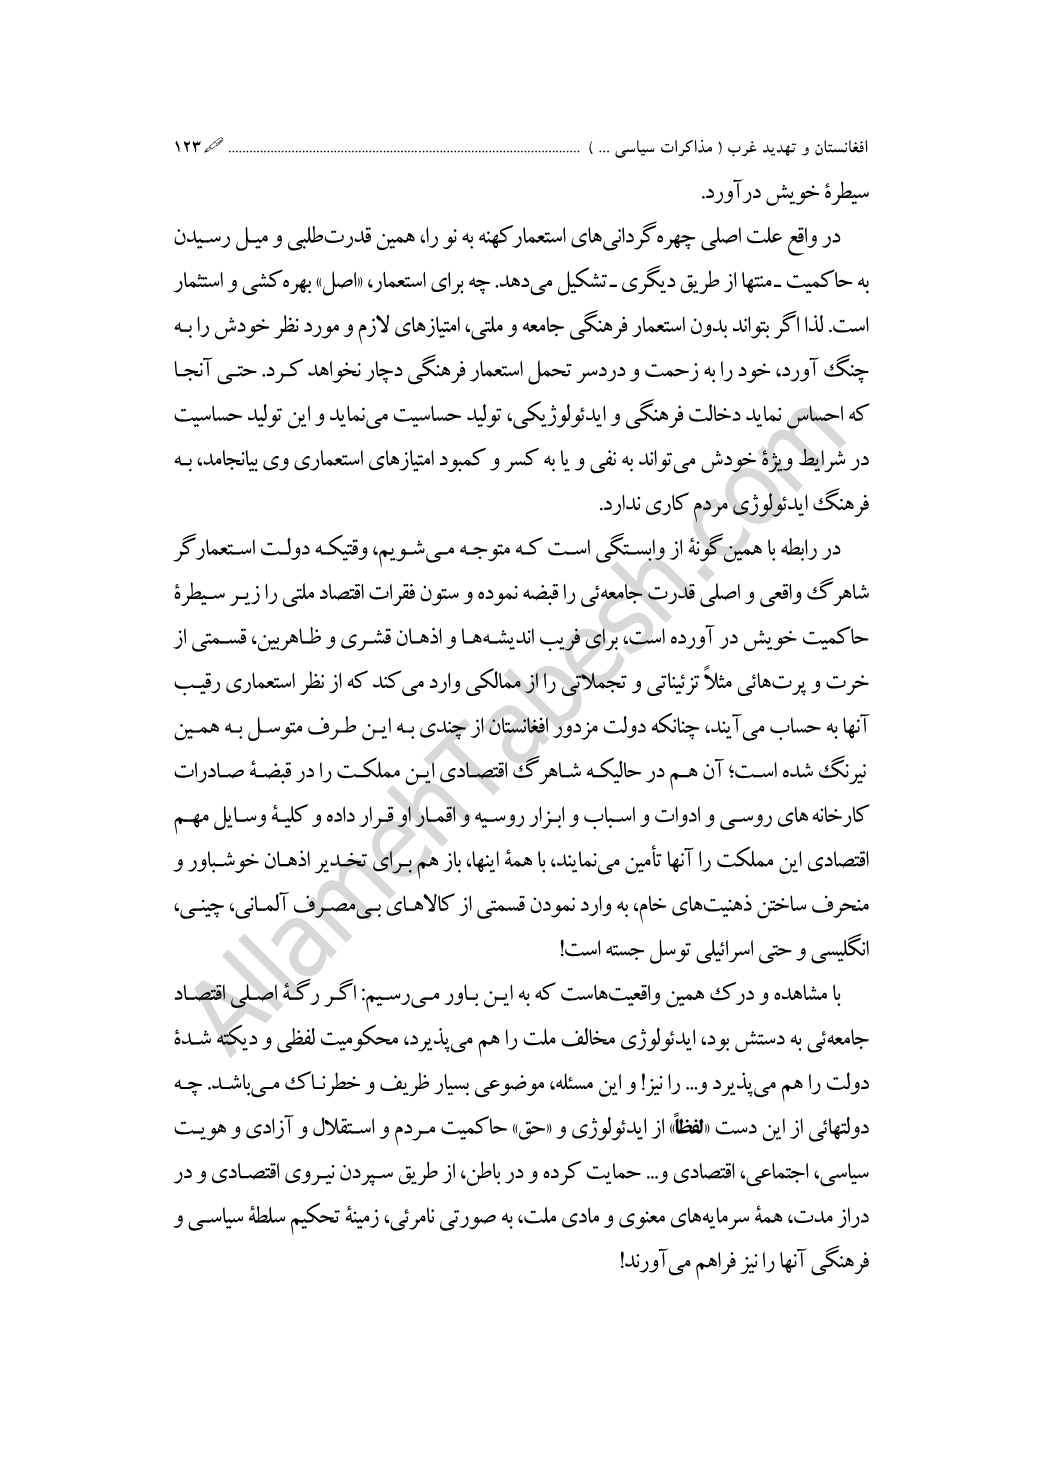 افغانستان و تهدید غرب ( مذاکرات سیاسی ... ) .......................................................................................................... ۱۲۳
سیطرهٔ خویش درآورد.
در واقع علت اصلی چهره‌گردانی‌های استعمار کهنه به نو را، همین قدرت‌طلبی و میل رسیدن
به حاکمیت ـ منتها از طریق دیگری ـ تشکیل می‌دهد. چه برای استعمار، «اصل» بهره‌کشی و استثمار
است. لذا اگر بتواند بدون استعمار فرهنگی جامعه و ملتی، امتیازهای لازم و مورد نظر خودش را به
چنگ آورد، خود را به زحمت و دردسر تحمل استعمار فرهنگی دچار نخواهد کرد. حتی آنجا
که احساس نماید دخالت فرهنگی و ایدئولوژیکی، تولید حساسیت می‌نماید و این تولید حساسیت
در شرایط ویژهٔ خودش می‌تواند به نفی و یا به کسر و کمبود امتیازهای استعماری وی بیانجامد، به
فرهنگ ایدئولوژی مردم کاری ندارد.
در رابطه با همین‌گونهٔ از وابستگی است که متوجه می‌شویم، وقتیکه دولت استعمارگر
شاهرگ واقعی و اصلی قدرت جامعه‌ئی را قبضه نموده و ستون فقرات اقتصاد ملتی را زیر سیطرهٔ
حاکمیت خویش در آورده است، برای فریب اندیشه‌ها و اذهان قشری و ظاهربین، قسمتی از
خرت و پرت‌هائی مثلاً تزئیناتی و تجملاتی را از ممالکی وارد می‌کند که از نظر استعماری رقیب
آنها به حساب می‌آیند، چنانکه دولت مزدور افغانستان از چندی به این طرف متوسل به همین
نیرنگ شده است؛ آن هم در حالیکه شاهرگ اقتصادی این مملکت را در قبضهٔ صادرات
کارخانه های روسی و ادوات و اسباب و ابزار روسیه و اقمار او قرار داده و کلیهٔ وسایل مهم
اقتصادی این مملکت را آنها تأمین می‌نمایند، با همهٔ اینها، باز هم برای تخدیر اذهان خوشباور و
منحرف ساختن ذهنیت‌های خام، به وارد نمودن قسمتی از کالاهای بی‌مصرف آلمانی، چینی،
انگلیسی و حتی اسرائیلی توسل جسته است!
با مشاهده و درک همین واقعیت‌هاست که به این باور می‌رسیم: اگر رگهٔ اصلی اقتصاد
جامعه‌ئی به دستش بود، ایدئولوژی مخالف ملت را هم می‌پذیرد، محکومیت لفظی و دیکته شدهٔ
دولت را هم می‌پذیرد و... را نیز! و این مسئله، موضوعی بسیار ظریف و خطرناک می‌باشد. چه
دولتهائی از این دست «لفظاً» از ایدئولوژی و «حق» حاکمیت مردم و استقلال و آزادی و هویت
سیاسی، اجتماعی، اقتصادی و... حمایت کرده و در باطن، از طریق سپردن نیروی اقتصادی و در
دراز مدت، همهٔ سرمایه‌های معنوی و مادی ملت، به صورتی نامرئی، زمینهٔ تحکیم سلطهٔ سیاسی و
فرهنگی آنها را نیز فراهم می‌آورند!
AllamehTabesh.com